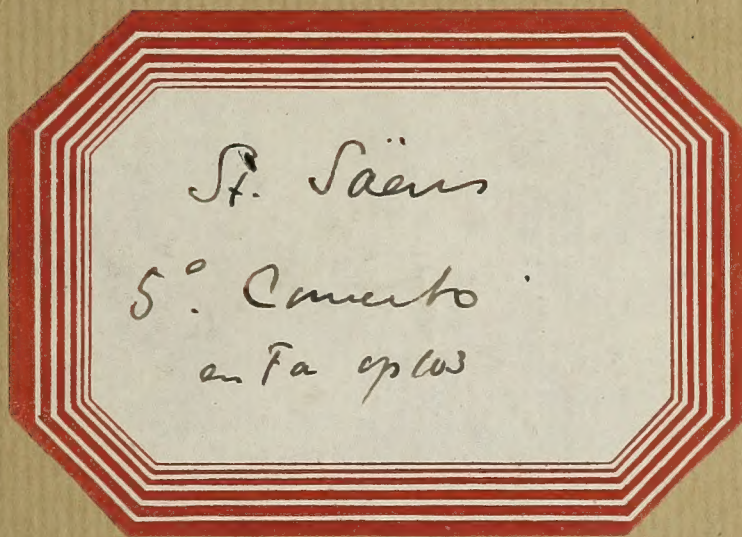 St. Saëns
5º. Concerto
en Fa op 103